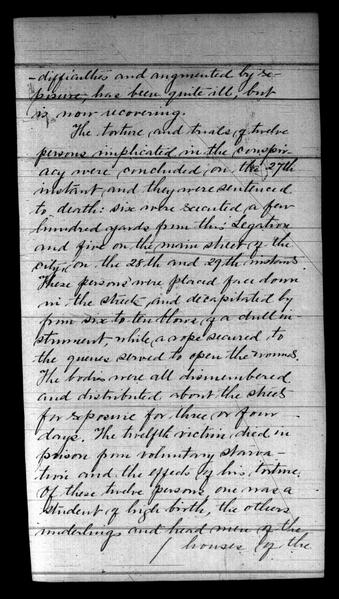 -difficulties and augmented by ex-
posure, has been quite ill, but
is now recovering.
The torture and trials of twelve
persons implicated in the conspir-
acy were concluded on the 27th
instant and they were sentenced
to death: six were executed a few
hundred yards from this Legation
and five on the main street of the
city, on the 28th and 29th instants.
These persons were placed face down
in the street and decapitated by
from six to ten blows of a dull in-
strument, while a rope secured to
the queues served to open the wounds.
The bodies were all dismembered
and distributed about the streets
for exposure for three or four
days. The twelfth victim died in
prison from voluntary starva-
tion and the effects of his torture.
Of these twelve persons one was a
student of high birth, the others
underlings and head men of the
houses of the